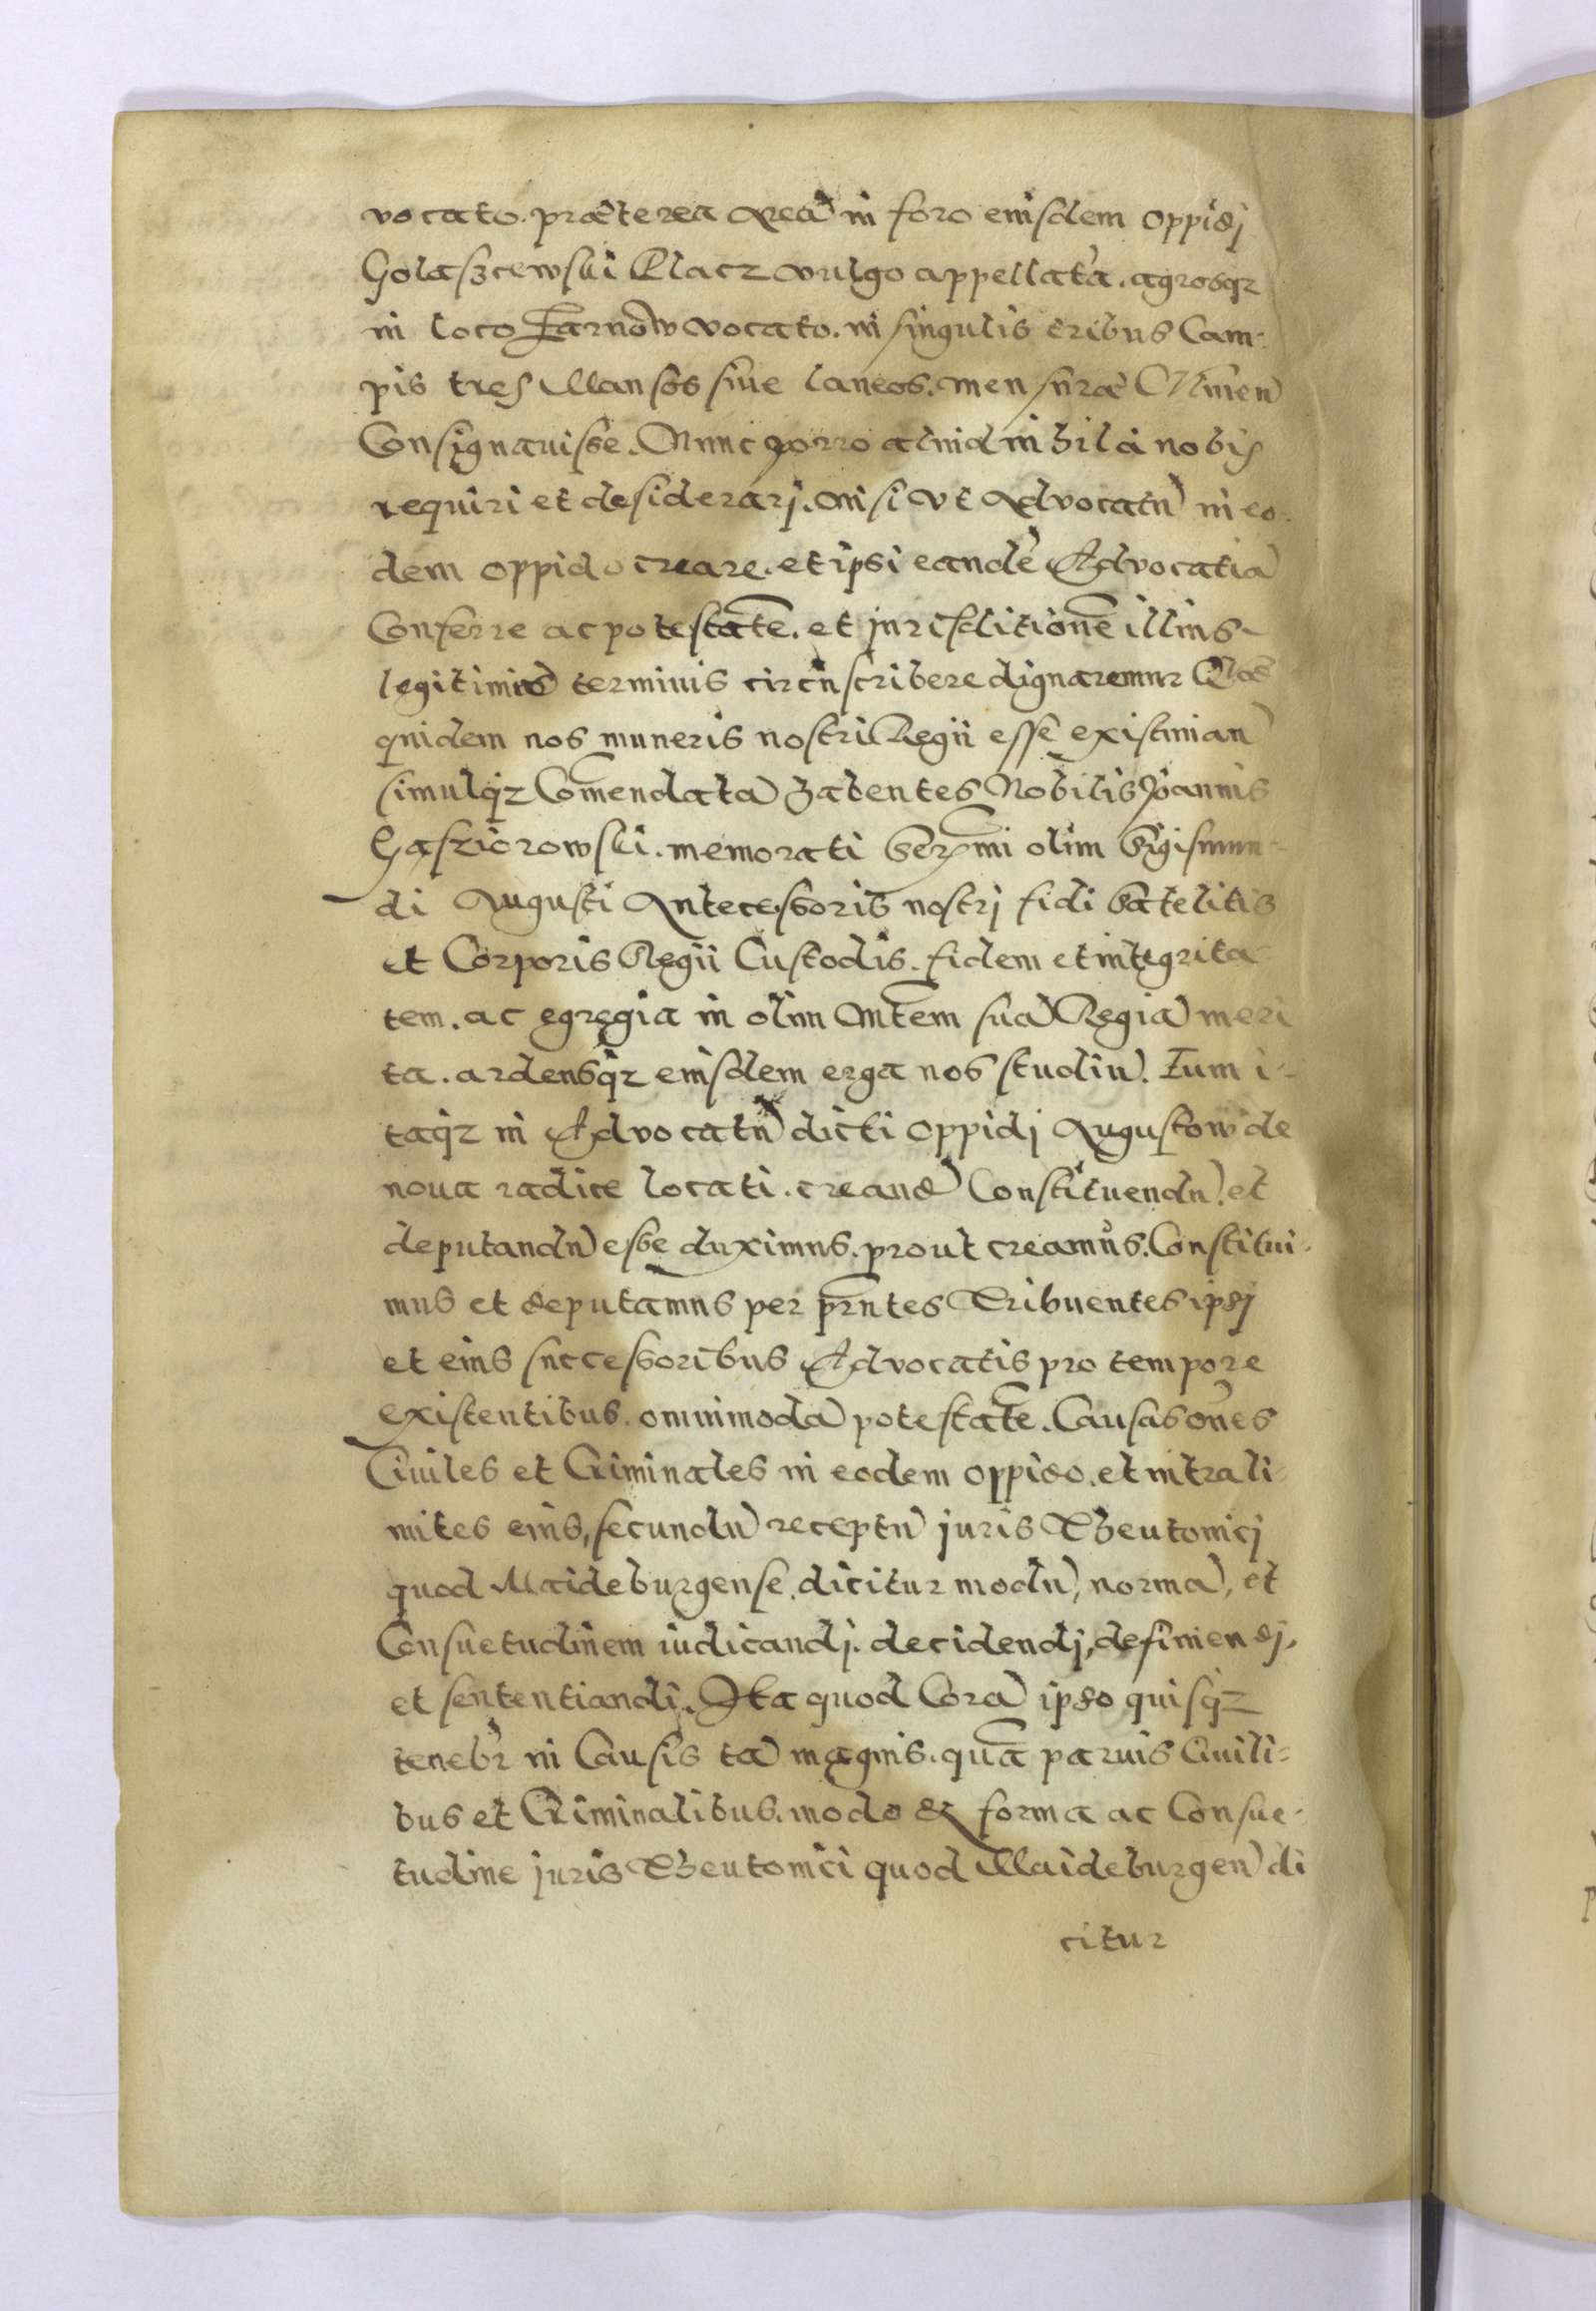 vocato. præterea areā in foro eiusdem oppidj
Golaszcewski Placz vulgo appellatā. agrosqz
in loco Tarnow vocato. in singulis tribus Cam-
pis tres Mansos siue laneos. mensurā Culmen
Consignauisse. Nunc porro aliud nihil à nobis
requiri et desiderarj. nisi vt Advocatū in eo-
dem oppido creare. et ipsi eandē Advocatiā
Conferre ac potestatē. et jurisditionē illius
legitimis terminis circūscribere dignaremur Qd
quidem nos muneris nostri Regii esse existiman
simulqz Comendatā habentes Nobilis Joannis
Gasziorowski. memorati Sermi olim Sigismun-
di Augusti Antecessoris nostrj fidi Satelitis
et Corporis Regii Custodis. fidem et integrita-
tem. ac egregia in olim Mtem suā Regiā meri
ta. ardensqz eiusdem erga nos studiū. Eum i-
taqz in Advocatū dicti oppidj Augustow de
noua radice locati. creand Constituendū. et
deputandū esse duximus. prout creamus. Constitui-
mus et deputamus per prntes Tribuentes ipsj
et eius successoribus Advocatis pro tempore
existentibus. omnimodā potestatē. Causas ōnes
Ciuiles et Criminales in eodem oppido. et intra li-
mites eius, secundū receptū juris Theutonicj
quod Maideburgense. dicitur modū, normā, et
Consuetudinem iudicandj. decidendj, definiendj,
et sententiandi. Ita quod Corā ipso quisqz
tenebr in Causis tā magnis. quā paruis Ciuili-
bus et Criminalibus. modo & forma ac Consue-
tudine juris Theutonici quod Maideburgen di
citur